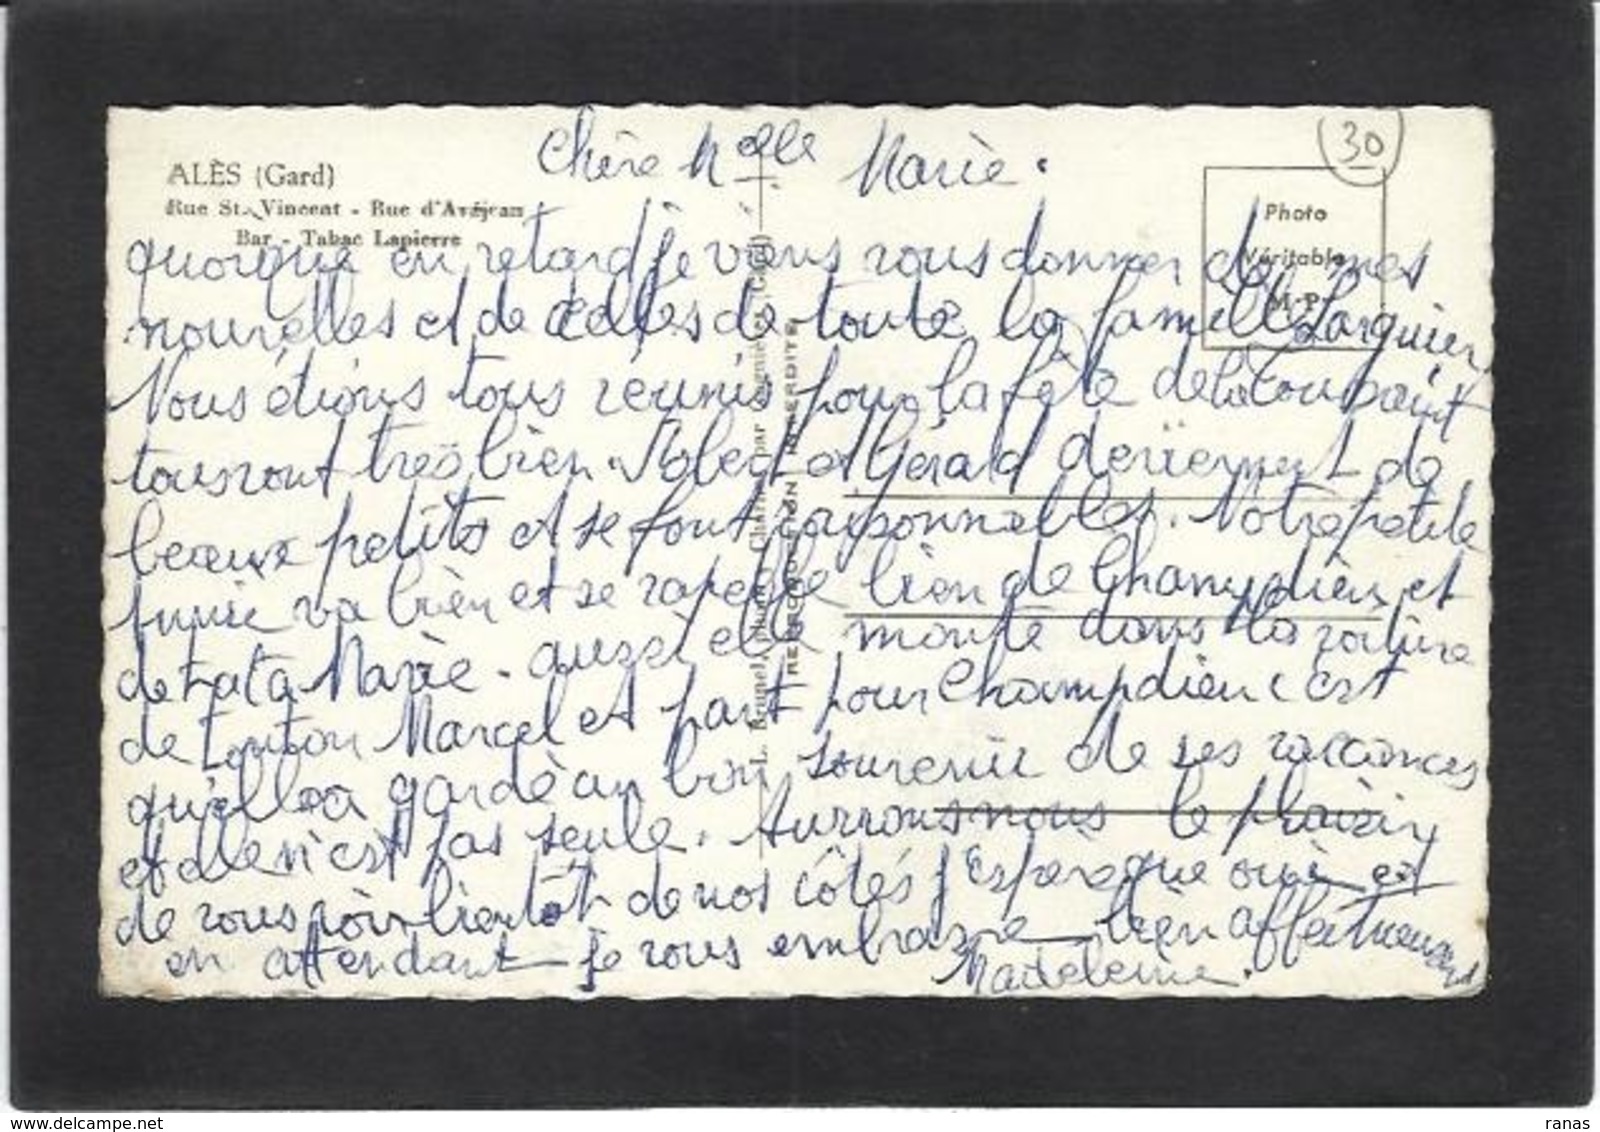 ALÈS (Gard)
Rue St-Vincent - Rue d'Avéjean
Bar - Tabac Lapierre
30
Photo
Véritable
M-P
Chère Melle Marie.
quoique en retard je viens vous donner de mes
nouvelles et de celles de toute la famille Larguier
Nous étions tous réunis pour la fête de la Toussaint
tous vont très bien. et Gérald deviennent de
beaux petits et se font raisonnables. Notre petite
va bien et se rapelle bien de Champdieu et
de tata Marie. aussi elle monte dans la voiture
de tonton Marcel et part pour Champdieu c'est
qu'elle a gardé un bon souvenir de ses vacances
et elle n'est pas seule. Aurrons nous le plaisir
de vous voir bientôt de nos côtés j'espère que oui et
en attendant je vous embrasse bien affectueusement
Madeleine.
REPRODUCTION INTERDITE